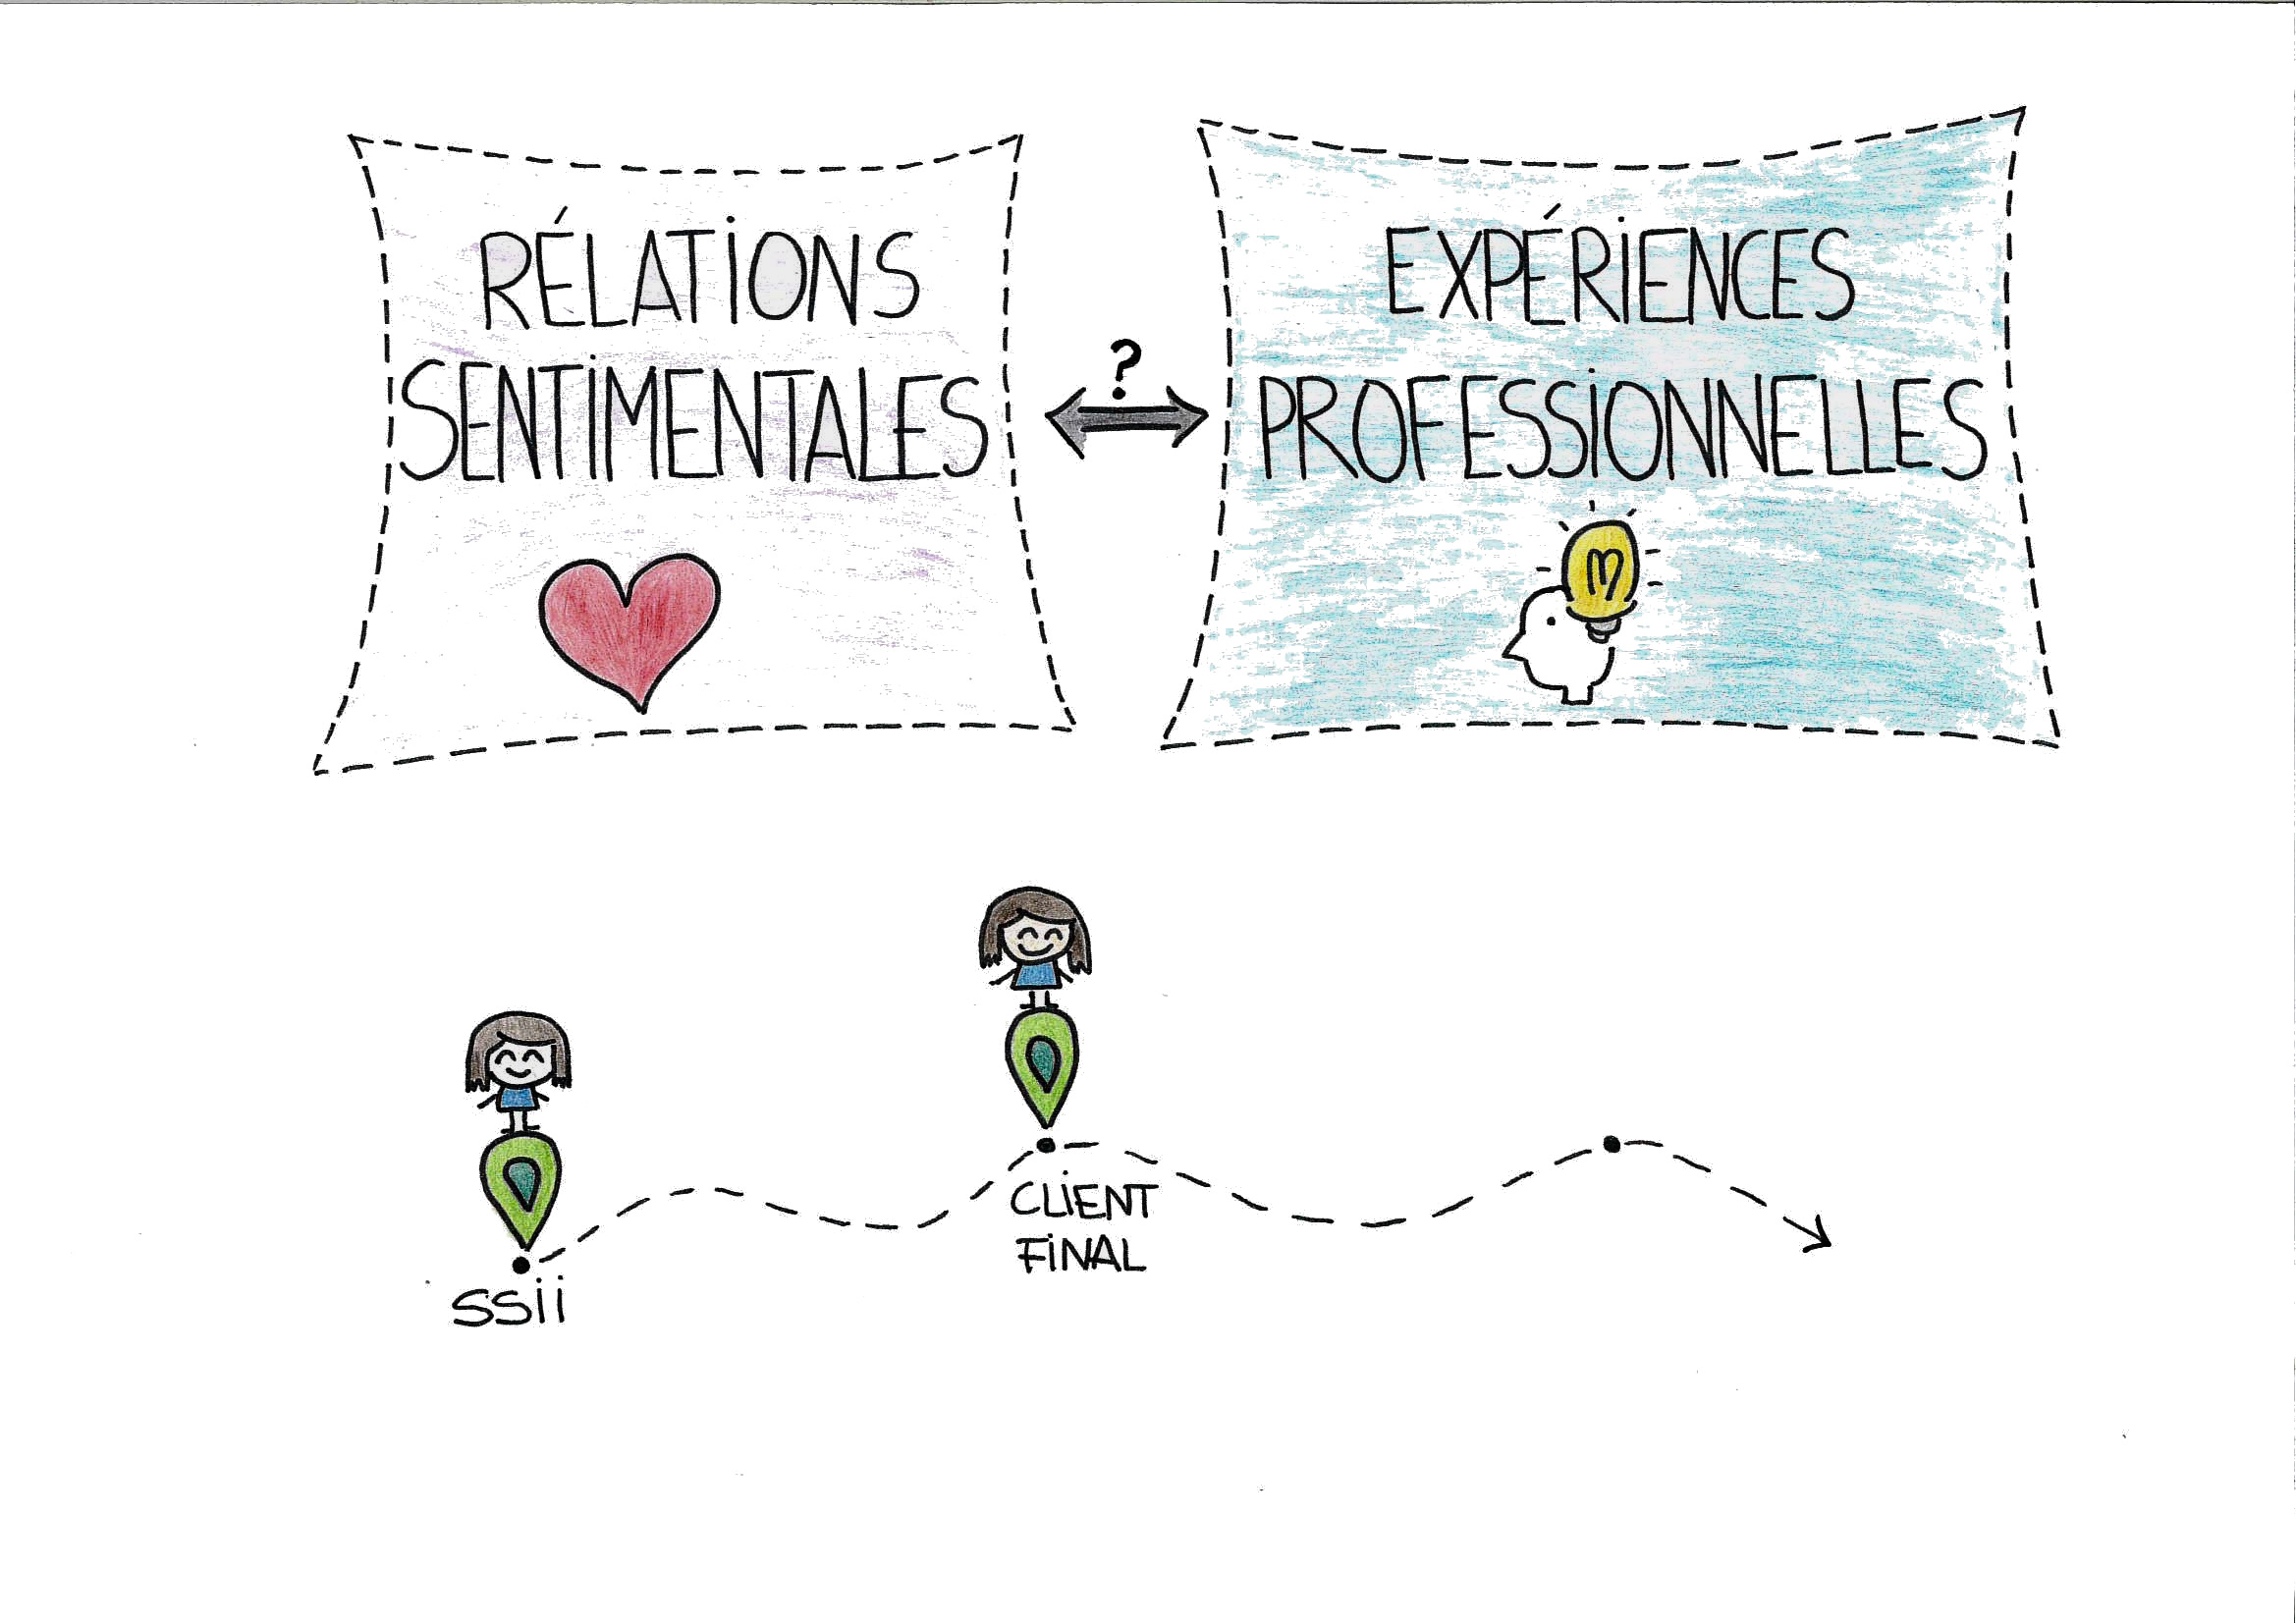 RÉLATIONS
SENTIMENTALES
?
EXPÉRIENCES
PROFESSIONNELLES
SSii
CLIENT
FINAL